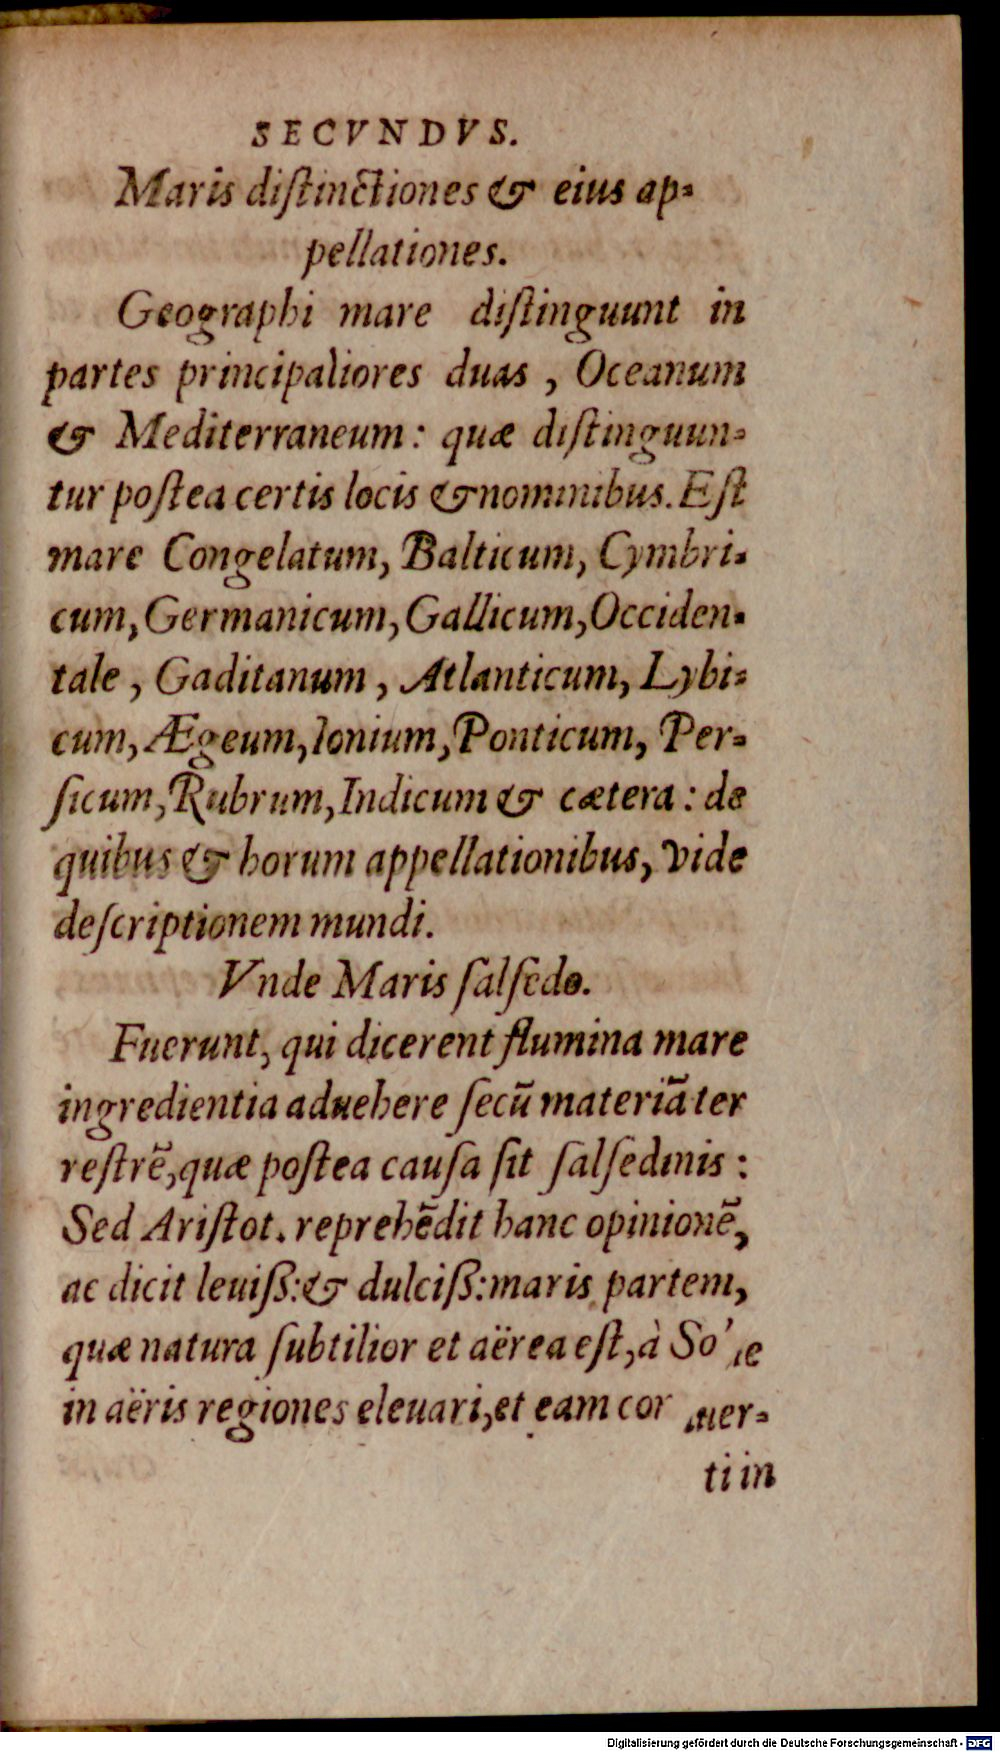 SECVNDVS.
Maris diſtinctiones & eius ap-
pellationes.
Geographi mare diſtinguunt in
partes principaliores duas, Oceanum
& Mediterraneum: quæ diſtinguun-
tur poſtea certis locis & nominibus. Eſt
mare Congelatum, Balticum, Cymbri-
cum, Germanicum, Gallicum, Occiden-
tale, Gaditanum, Atlanticum, Lybi-
cum, Ægeum, Ionium, Ponticum, Per-
ſicum, Rubrum, Indicum & cætera: de
quibus & horum appellationibus, vide
deſcriptionem mundi.
Vnde Maris ſalſedo.
Fuerunt, qui dicerent flumina mare
ingredientia aduehere ſecū materiā ter
reſtrē, quæ poſtea cauſa ſit ſalſedinis:
Sed Ariſtot. reprehēdit hanc opinionē,
ac dicit leuiß: & dulciß: maris partem,
quæ natura ſubtilior et aërea eſt, à
in aëris regiones eleuari, et eam
ti in
Digitalisierung gefördert durch die Deutsche Forschungsgemeinschaft - DFG